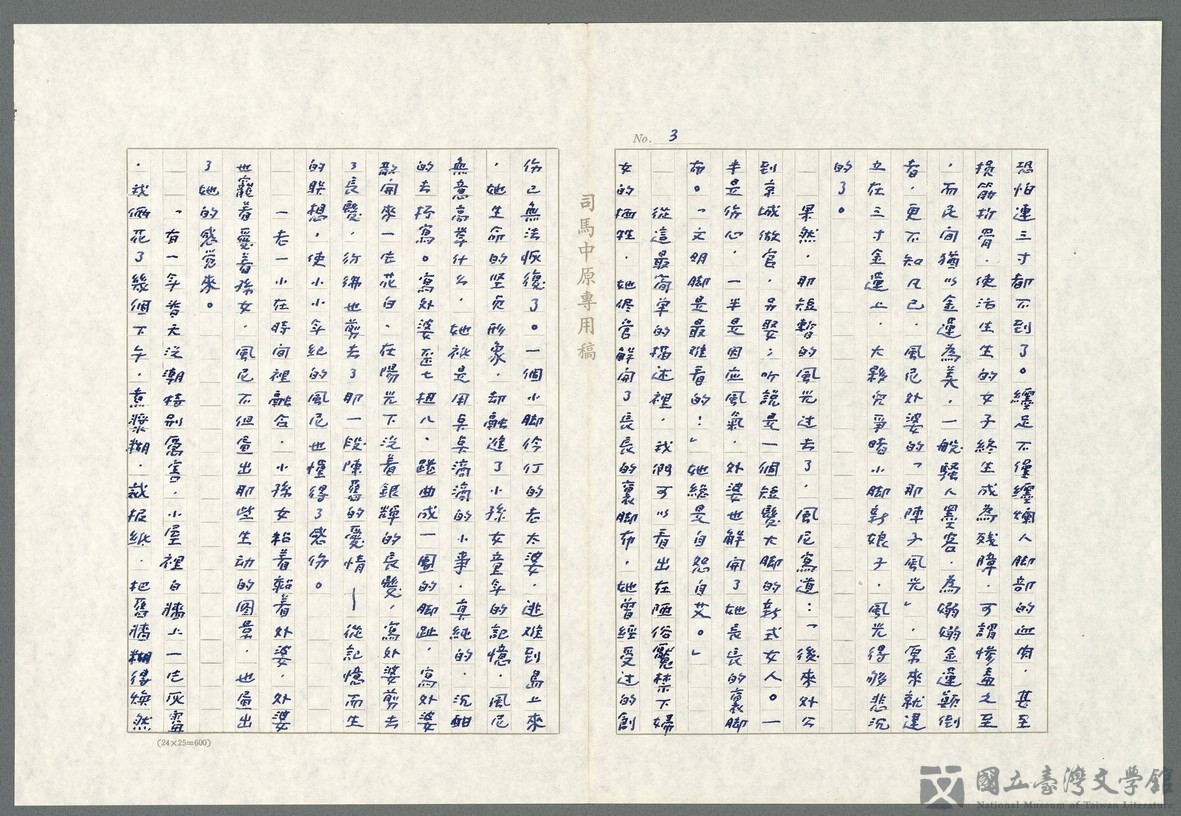 No. 3
恐怕連三寸都不到了。纏足不僅纏爛人腳部的血肉，甚至
損筋折骨，使活生生的女子終生成為殘障，可謂慘盡之至
，而民間猶以金蓮為美，一般騷人墨客，為嫋嫋金蓮顛倒
者，更不知凡已，風尼外婆的「那陣子風光」，原來就建
立在三寸金蓮上，大夥兒爭睹小腳新娘子，風光得夠悲沉
的了。
果然，那短暫的風光過去了，風尼寫道：「後來外公
到京城做官，另娶；听說是一個短髮大腳的新式女人。一
半是傷心，一半是因應風氣，外婆也解開了她長長的裹腳
布。「文明腳是最难看的：」她總是自怨自艾。」
從這最简單的描述裡，我們可以看出在陋俗魘禁下婦
女的犧牲，她侭管解開了長長的裹脚布，她曾經受过的創
傷已無法恢復了。一個小脚伶仃的老太婆，逃难到島上來
，她生命的坚貞形象，却融進了小孫女童年的記憶，風尼
無意高擧什么，她祗是用点点滴滴的小事，真純的，沉酣
的去抒寫。寫外婆歪七扭八、踡曲成一團的脚趾，寫外婆
散開來一生花白、在陽光下泛着銀輝的長髮，寫外婆剪去
了長髮，彷彿也剪去了那一段陳舊的愛情—從記憶而生
的联想，使小小年紀的風尼也懂得了感伤。
一老一小在時间裡融合，小孫女粘着黏着外婆，外婆
也寵着愛着孫女，風尼不但畫出那些生动的图景，也畫出
了她的感覚來。
「有一年春天泛潮特别厲害，小屋裡白牆上一屯灰雲
，我倆花了幾個下午，熬漿糊，裁报紙，把舊牆糊得煥然
司馬中原專用稿
(24×25=600)
國立臺灣文學館
National Museum of Taiwan Literature